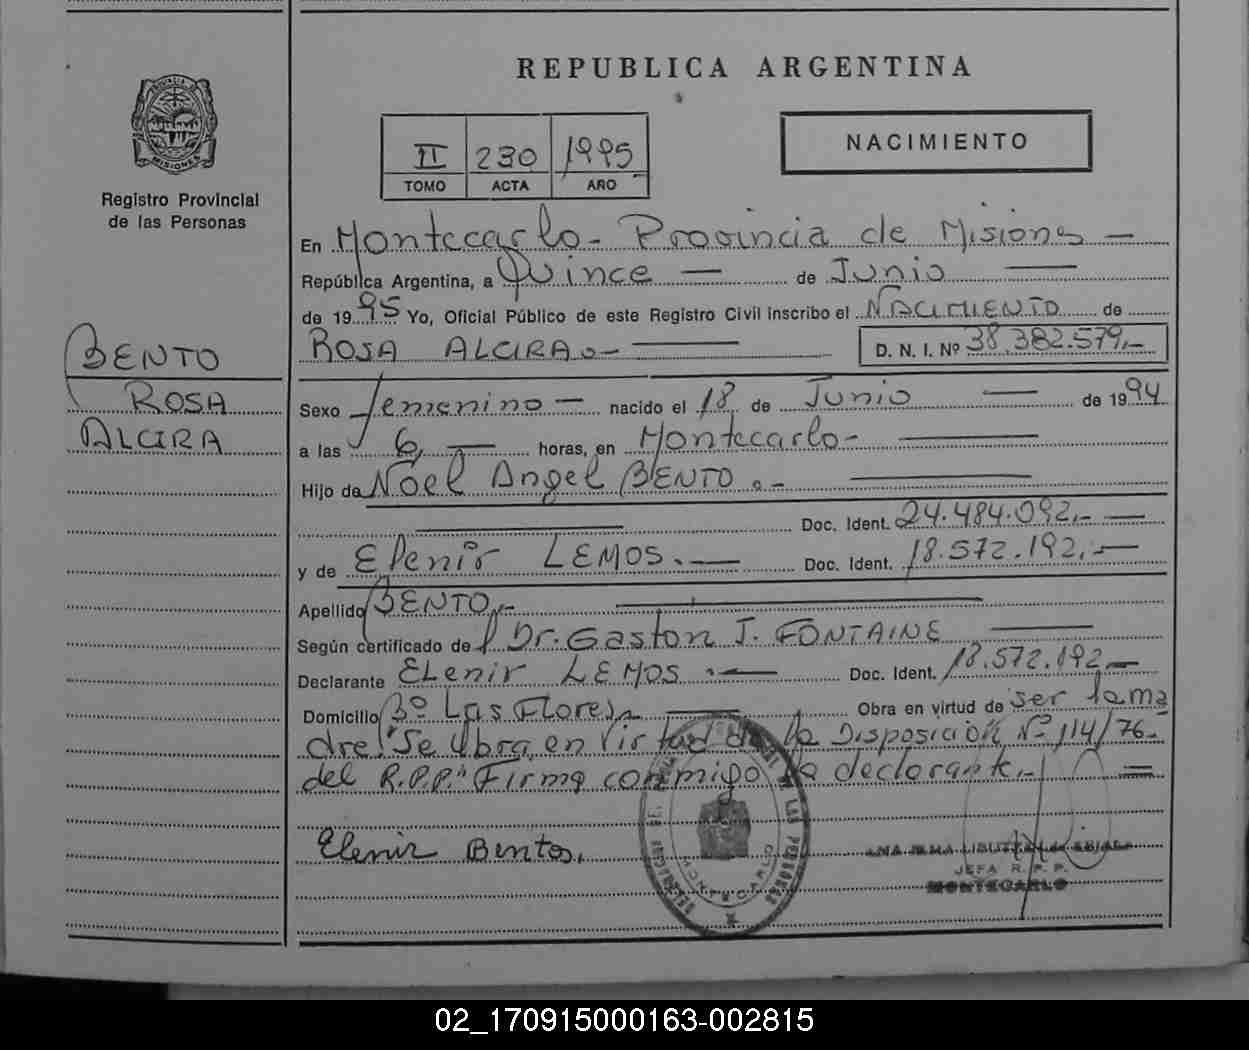 REPUBLICA ARGENTINA
PROVINCIA DE
MISIONES
Registro Provincial
de las Personas
II 230 1995
TOMO ACTA AÑO
NACIMIENTO
En Montecarlo - Provincia de Misiones —
República Argentina, a Quince — de Junio —
de 1995 Yo, Oficial Público de este Registro Civil inscribo el NACIMIENTO de
ROSA ALCIRA.- — D. N. I. Nº 38.382.579,-
BENTO
ROSA
ALCIRA
Sexo femenino — nacido el 18 de Junio — de 1994
a las 6, — horas, en Montecarlo- —
Hijo de Noel Angel BENTO .- —
— Doc. Ident. 24.484.092,- —
y de Elenir LEMOS.- — Doc. Ident. 18.572.192,-—
Apellido BENTO,- —
Según certificado de Dr. Gaston J. FONTAINE —
Declarante ELenir LEMOS .-— Doc. Ident. 18.572.192,—
Domicilio Bº Las Flores, — Obra en virtud de ser la ma
dre, "Se labra en virtud de la Disposición Nº 114/76-
del R.P.P." Firma conmigo la declarante.- —
Elenir Bentos.
DE LAS PERSONAS
MONTECARLO
JEFA R. P. P.
MONTECARLO
02_170915000163-002815